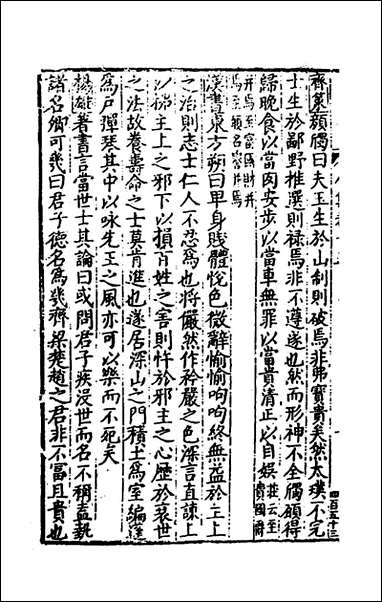 齊策顔斶曰夫玉生於山制則破焉非弗寶貴矣然太璞不完
士生於鄙野推選則禄焉非不尊遂也然而形神不全斶願得
歸晚食以當肉安步以當車無罪以當貴清正以自娛
漢書東方朔曰卑身賤體悅色微辭愉愉呴呴終無益於主上
之治則志士仁人不忍爲也將儼然作矜嚴之色深言直諫上
以拂主上之邪下以損百姓之害則忤於邪主之心歷於衰世
之法故養壽命之士莫肯進也遂居深山之間積土爲室編蓬
爲戸彈琴其中以咏先王之風亦可以樂而不死矣
楊雄著書言當世士其論曰或問君子疾没世而名不稱盍執
諸名卿可幾曰君子德名爲幾齊梁楚趙之君非不富且貴也